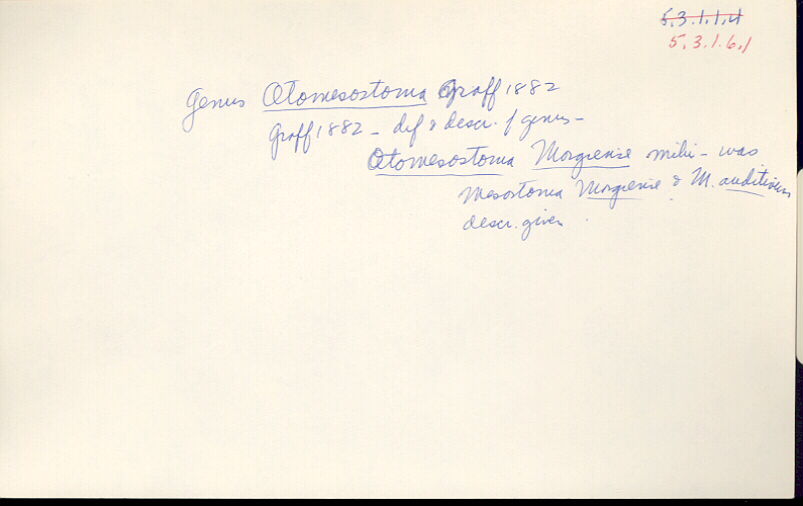 5.3.1.1.4
5.3.1.6.1
Genus Otomesostoma Graff 1882
Graff 1882 - def & descr. of genus -
Otomesostoma Morgiense mihi - was
Mesostoma Morgiense & M. auditivum
descr. given